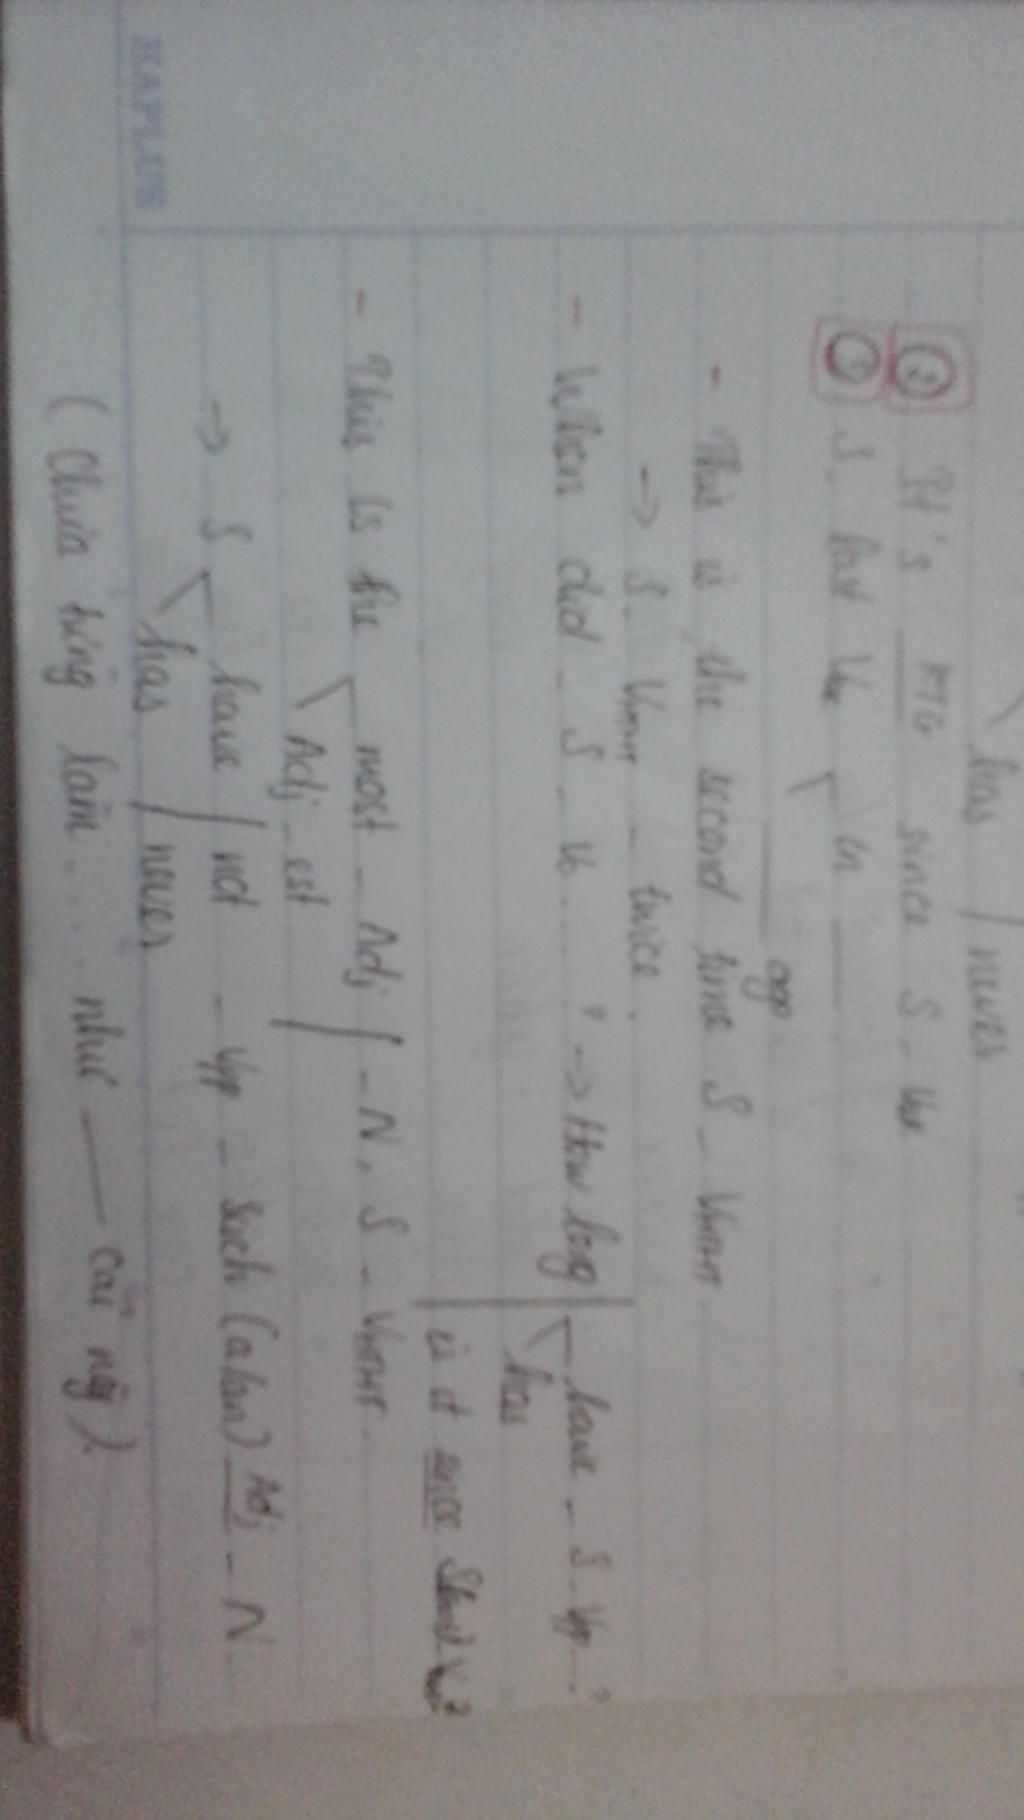 has / never
② It's KTG since S - Vqk
① S last Vqk
in
ago.
- This is the second time S - VHTHT.
→ S - VHTHT - twice.
- When did - S - V₀ ... ? → How long have - S - Vpp ...?
has
is it since S Vqk?
- This is the most - Adj / - N, S - VHTHT.
Adj - est
→ S have / not - Vpp - such (a/an) Adj - N.
has / never
(Chưa từng làm ... như — cái này).
KAPLUS